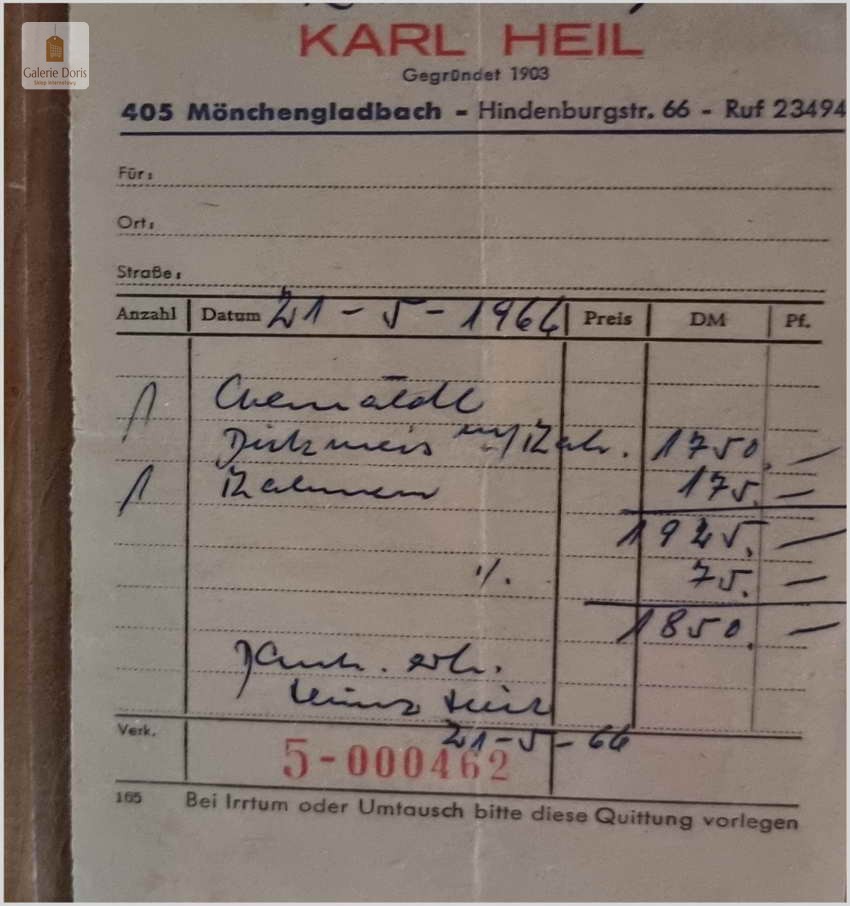 Galerie Doris
KARL HEIL
Gegründet 1903
405 Mönchengladbach - Hindenburgstr. 66 - Ruf 23494
Für:
Ort:
Straße:
Anzahl Datum 21-5-1966 Preis DM Pf.
1
1750.—
1 Rahmen 175.—
1925.—
./. 75.—
1850.—
21-5-66
Verk.
5-000462
165 Bei Irrtum oder Umtausch bitte diese Quittung vorlegen